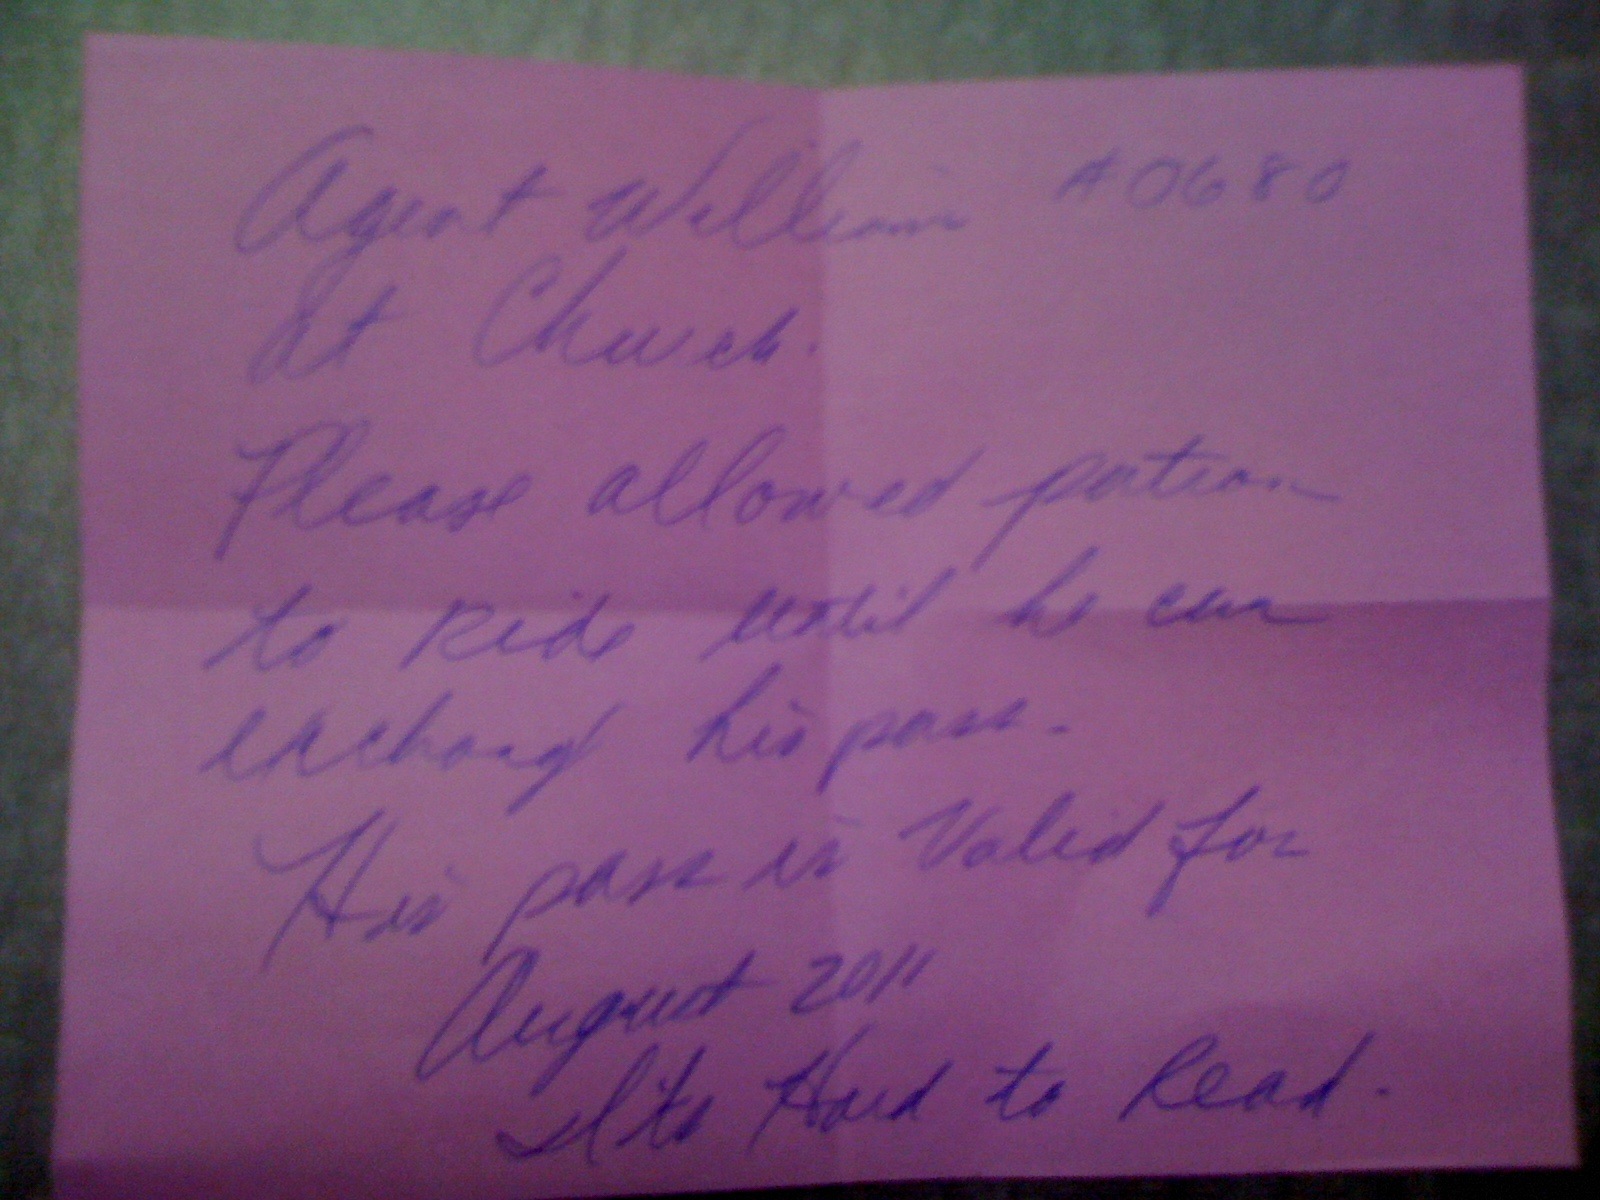 Agent William #0680
At Church.
Please allowed patron
to Ride until he can
exchang his pass.
His pass is Valid for
August 2011
Its Hard to Read.